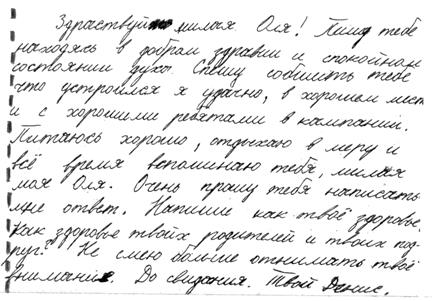 Здраствуй милая Оля! Пишу тебе
находясь в добром здравии и спокойном
состоянии духа. Спешу собщить тебе
что устроился я удачно, в хорошем месте
и с хорошими ребятами в кампании.
Питаюсь хорошо, отдыхаю в меру и
всё время вспоминаю тебя, милая
моя Оля. Очень прошу тебя написать
мне ответ. Напиши как твоё здоровье,
как здоровье твоих родителей и твоих под-
руг? Не смею больше отнимать твоё
внимание. До свидания. Твой Денис.